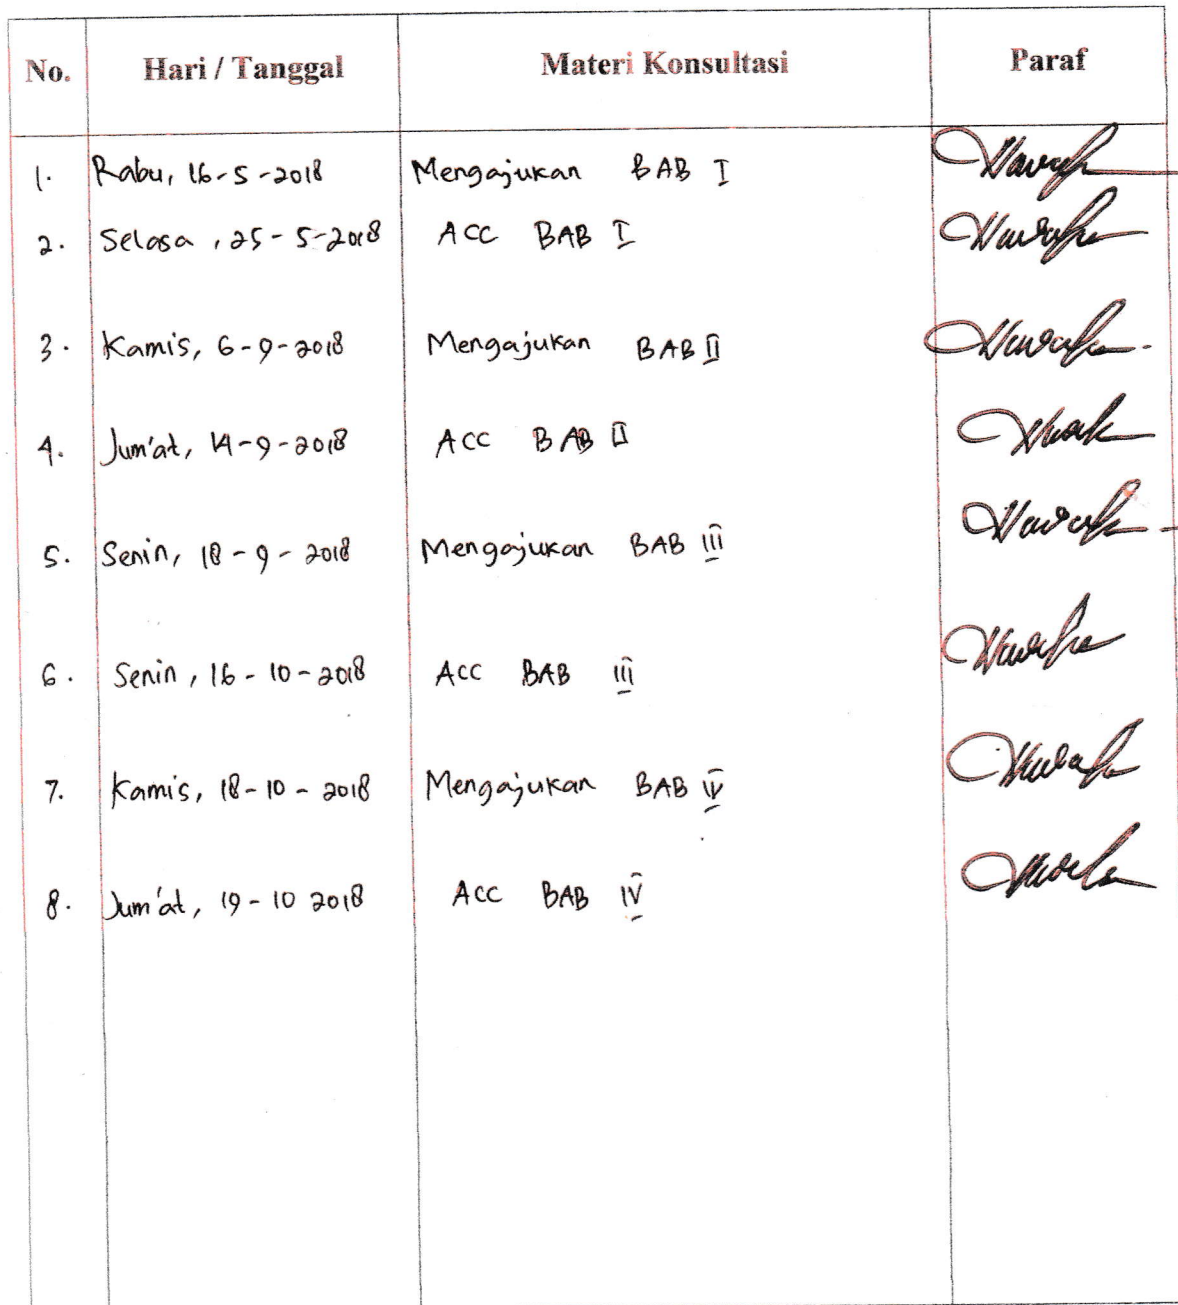 No. Hari / Tanggal Materi Konsultasi Paraf
1. Rabu, 16-5-2018 Mengajukan BAB I
2. Selasa, 25-5-2018 ACC BAB I
3. Kamis, 6-9-2018 Mengajukan BAB II
4. Jum'at, 14-9-2018 ACC BAB II
5. Senin, 18-9-2018 Mengajukan BAB III
6. Senin, 16-10-2018 ACC BAB III
7. Kamis, 18-10-2018 Mengajukan BAB IV
8. Jum'at, 19-10 2018 ACC BAB IV